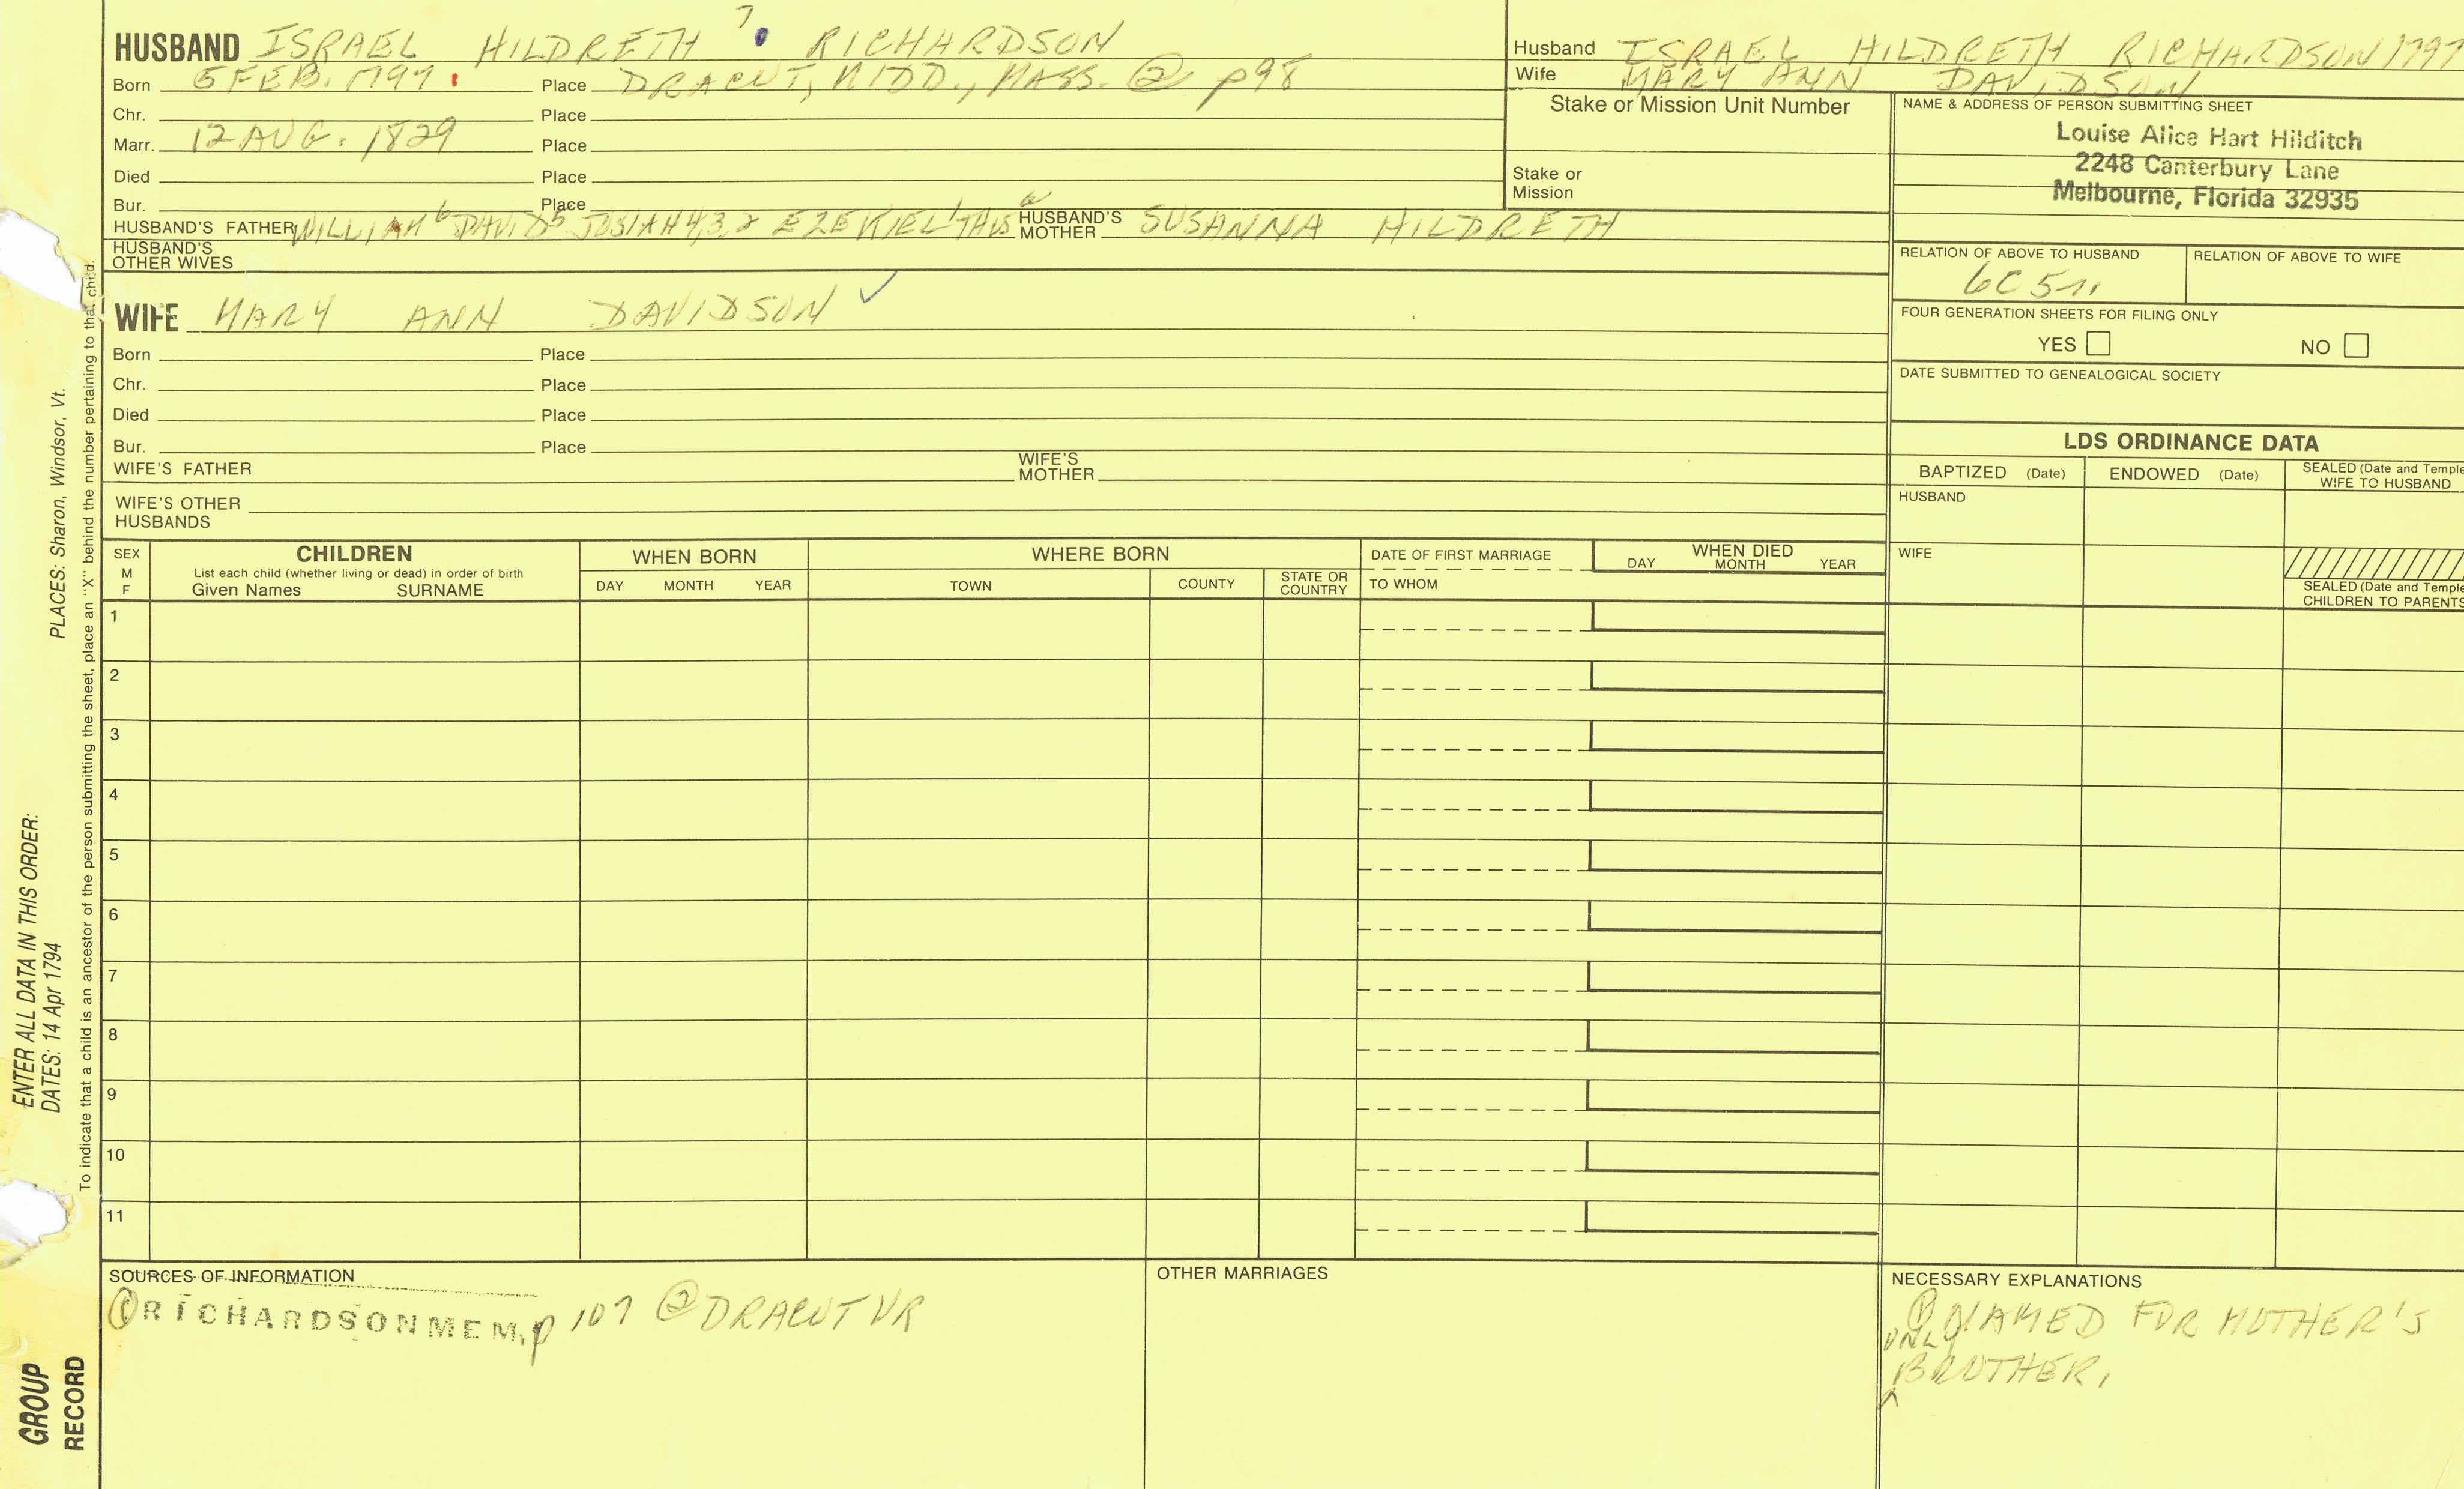 HUSBAND ISRAEL HILDRETH 7 RICHARDSON
Born 5 FEB. 1797. Place DRACUT, MIDD., MASS. ② p98
Chr. Place
Marr. 12 AUG. 1829 Place
Died Place
Bur. Place
HUSBAND'S FATHER WILLIAM 6 DAVID 5 JOSIAH 4,3,2 EZEKIEL 1 HUSBAND'S MOTHER SUSANNA HILDRETH
HUSBAND'S OTHER WIVES
WIFE MARY ANN DAVIDSON ✓
Born Place
Chr. Place
Died Place
Bur. Place
WIFE'S FATHER WIFE'S MOTHER
WIFE'S OTHER HUSBANDS
Husband ISRAEL HILDRETH RICHARDSON 1797
Wife MARY ANN DAVIDSON
Stake or Mission Unit Number
Stake or Mission
NAME & ADDRESS OF PERSON SUBMITTING SHEET
Louise Alice Hart Hilditch
2248 Canterbury Lane
Melbourne, Florida 32935
RELATION OF ABOVE TO HUSBAND RELATION OF ABOVE TO WIFE
6C5r
FOUR GENERATION SHEETS FOR FILING ONLY
YES NO
DATE SUBMITTED TO GENEALOGICAL SOCIETY
LDS ORDINANCE DATA
BAPTIZED (Date) ENDOWED (Date) SEALED (Date and Temple
WIFE TO HUSBAND
HUSBAND
WIFE
SEALED (Date and Temple
CHILDREN TO PARENTS
SEX M F
CHILDREN
List each child (whether living or dead) in order of birth
Given Names SURNAME
WHEN BORN
DAY MONTH YEAR
WHERE BORN
TOWN COUNTY STATE OR COUNTRY
DATE OF FIRST MARRIAGE
TO WHOM
WHEN DIED
DAY MONTH YEAR
1
2
3
4
5
6
7
8
9
10
11
SOURCES OF INFORMATION
① RICHARDSON MEM. p 107 ② DRACUT VR
OTHER MARRIAGES
NECESSARY EXPLANATIONS
① NAMED FOR MOTHER'S
ONLY
BROTHER.
PLACES: Sharon, Windsor, Vt.
ENTER ALL DATA IN THIS ORDER:
DATES: 14 Apr 1794
To indicate that a child is an ancestor of the person submitting the sheet, place an "X" behind the number pertaining to that child.
GROUP
RECORD